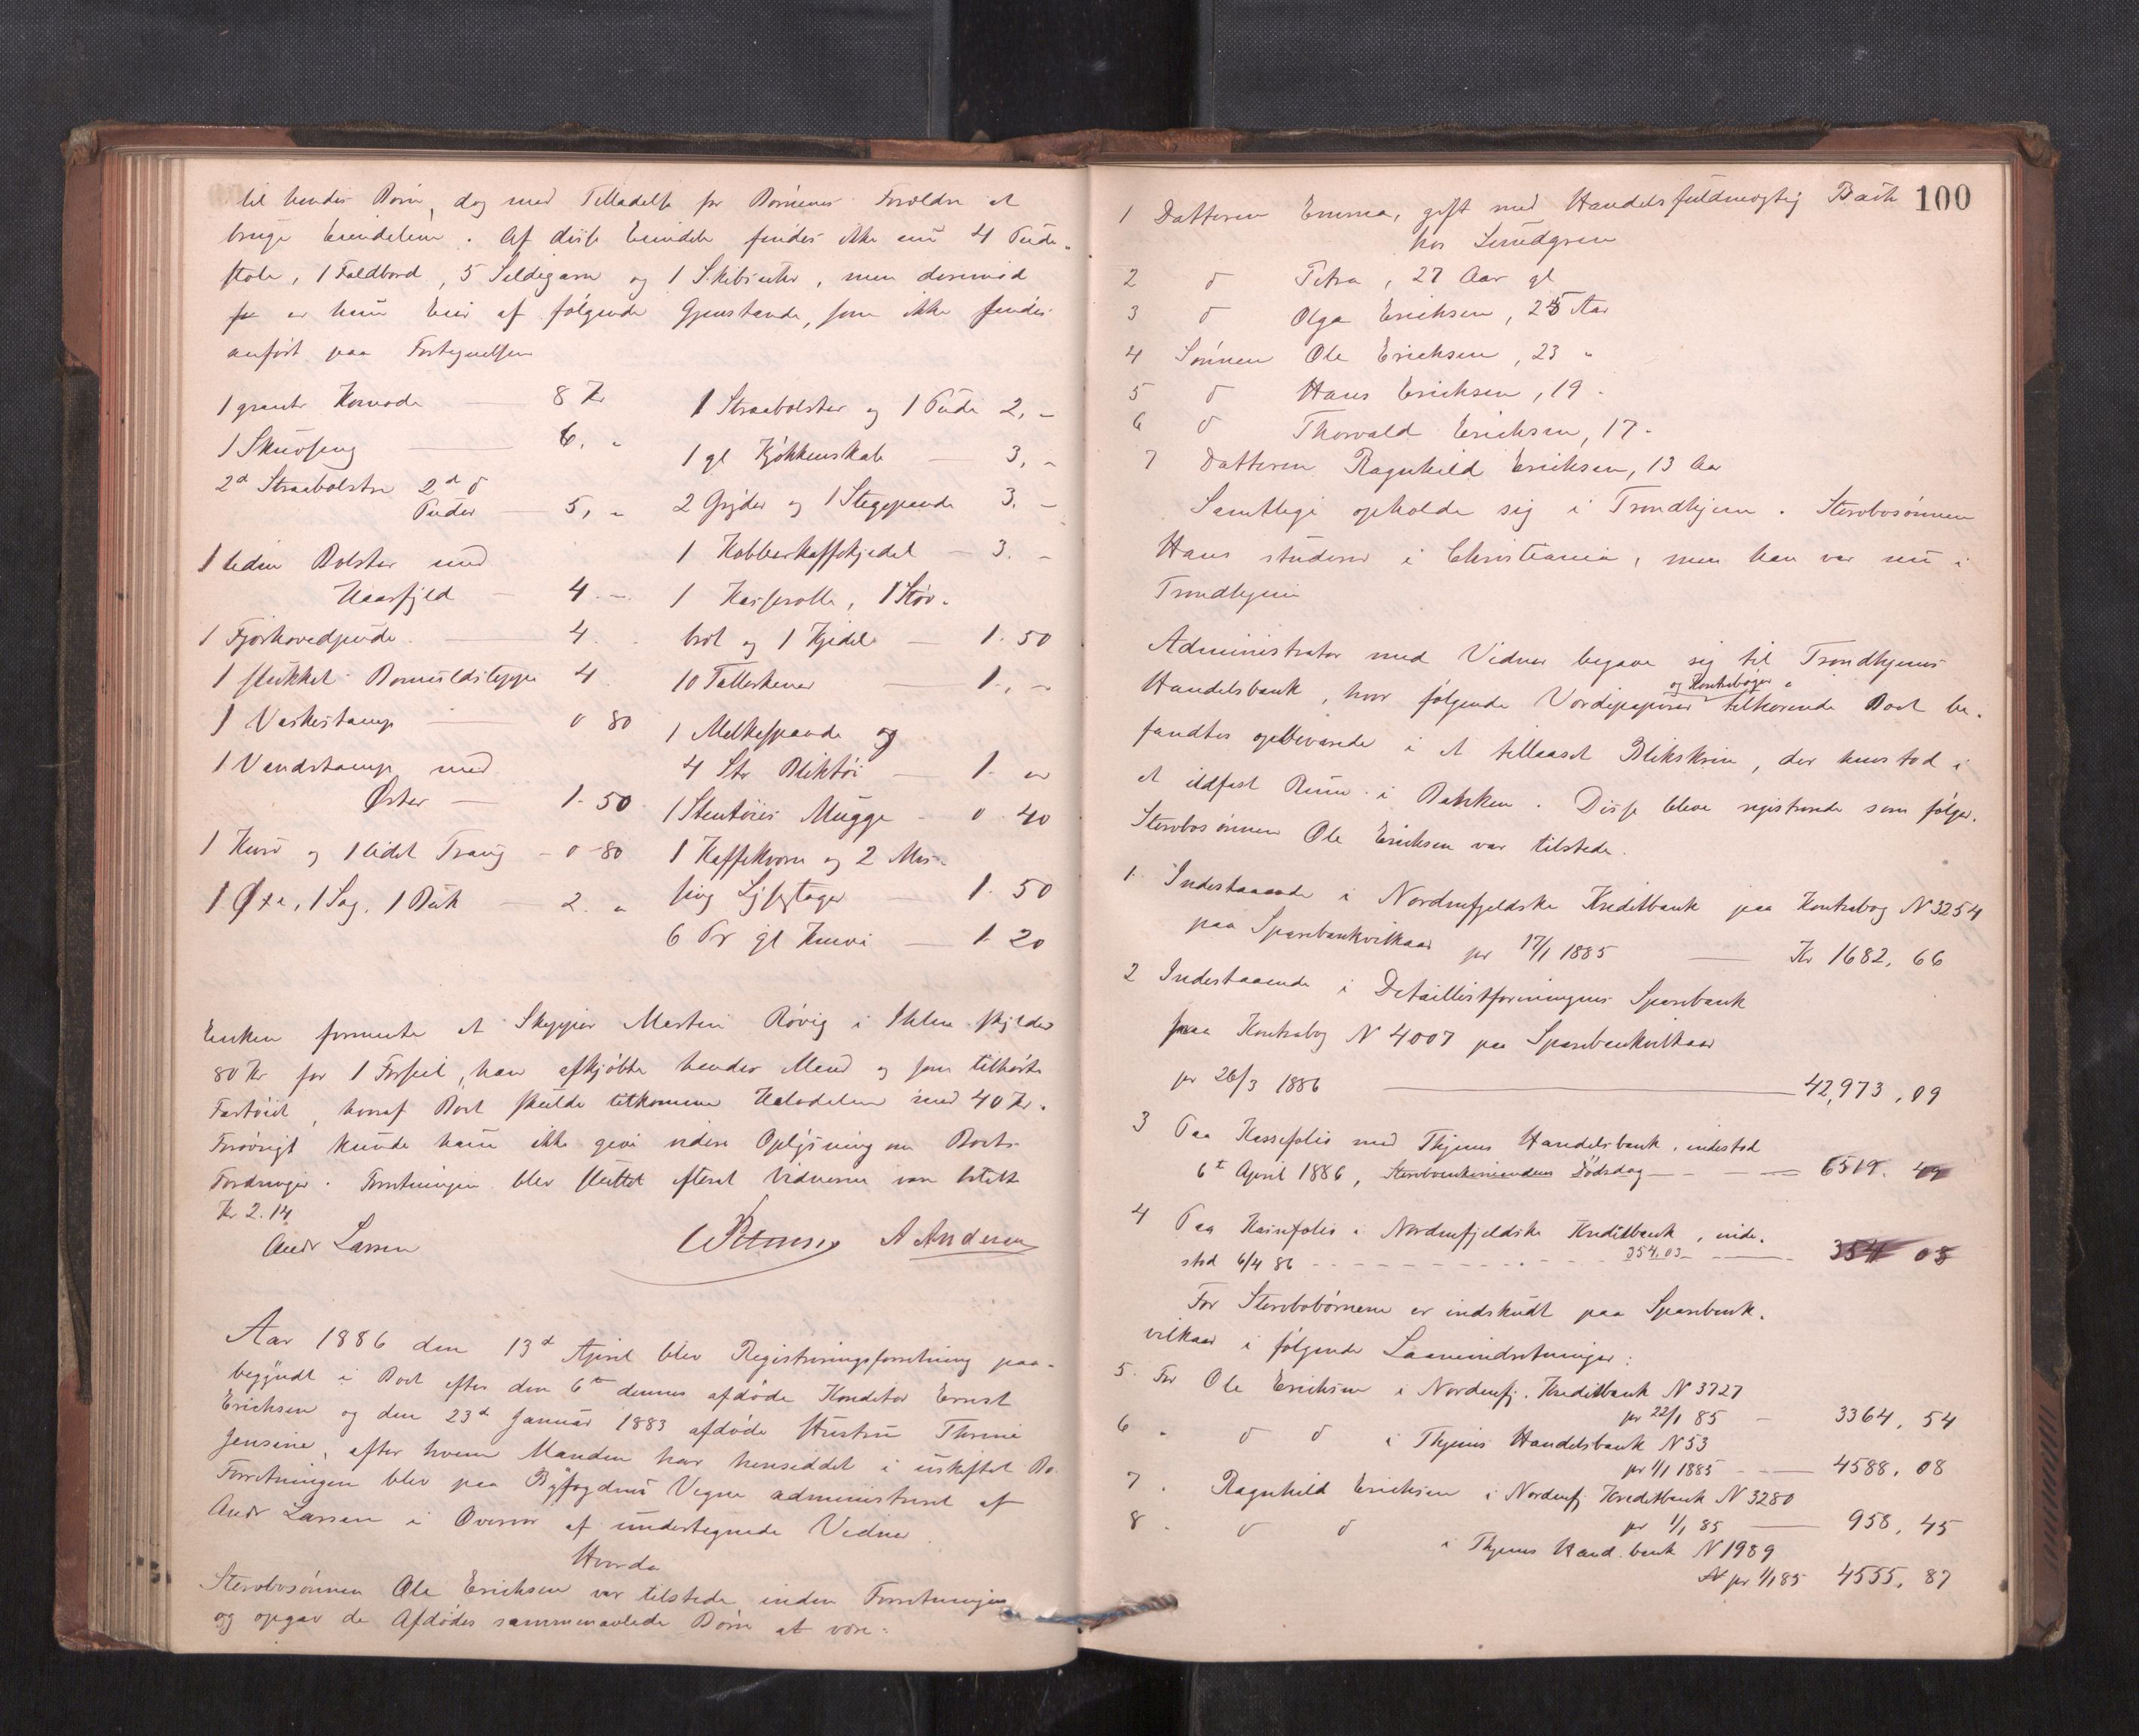 til hendes Børn, dog med Tilladelse for Børnenes Forældre at
bruge Eiendelene. Af disse Eiendele findes ikke nu 4 Pinde-
stole, 1 Foldbord, 5 Sildegarn og 1 Skibskiste, men derimod
er hun Eier af følgende Gjenstande, som ikke findes
anført paa Fortegnelsen
1 Komode — 8 Kr
1 Skuvseng — 6. „
2d Straabolstre 2d d
Puder — 5, „
1 liden Bolster med
Haarfyld — 4. —
1 Fjørhovedpude — 4.
1 stukket Bomuldsteppe 4
1 Vaskestamp — 0 80
1 Vandstamp med
Øster — 1. 50
1 Kurv og 1 lidet Traug — 0-80
1 Øxe, 1 Sag, 1 — 2. „
1 Straabolster og 1 Pude 2, —
1 gl Kjøkkenskab — 3, —
2 Gryder og 1 Stegepande 3. —
1 Kobberkaffekjedel — 3. —
1 Kasserolle, 1 Støv-
bret og 1 Kjedel — 1. 50
10 Tallerkener — 1., —
1 Melkespande og
4 Str Bliktøi — 1. „
1 Stentøies Mugge — 0 40
1 Kaffekvern og 2 Mes-
sing Lysestager — 1. 50
6 Pr gl Knive — 1. 20
Enken formente at Skipper Martin Røvig i Ihlen skylder
80 Kr for 1 Forseil, han afkjøbte hendes Mand og som tilhørte
Fartøiet, hvoraf Boet skulde tilkomme Halvdelen med 40 Kr.
Forøvrigt kunde hun ikke give videre Oplysning om Boets
Fordringer. Forretningen blev sluttet efterat Vidnerne vare betalt
Kr 2.14
Andr Larsen A Andersen
Aar 1886 den 13d April blev Registreringsforretning paa-
begyndt i Boet efter den 6te dennes afdøde Konditor Ernst
Erichsen og den 23d Januar 1883 afdøde Hustru Thrine
Jensine, efter hvem Manden har hensiddet i uskiftet Bo.
Forretningen blev paa Byfogdens Vegne administreret af
Andr Larsen i Overvær af undertegnede Vidner
Hvorda
Stervbosønnen Ole Erichsen var tilstede under Forretningen
og opgav de Afdødes sammenavlede Børn at være:
100
1 Datteren Emma, gift med Handelsfuldmægtig Bach
hos Lundgren
2 d Petra, 27 Aar gl
3 d Olga Erichsen, 25 Aar
4 Sønnen Ole Erichsen, 23 „
5 d Hans Erichsen, 19 -
6 d Thorvald Erichsen, 17 -
7 Datteren Ragnhild Erichsen, 13 Aa
Samtlige opholde sig i Trondhjem. Stervbosønnen
Hans studerer i Christiania, men han var nu i
Trondhjem
Administrator med Vidner begave sig til Trondhjems
Handelsbank, hvor følgende Værdipapirer og Kontrabøger tilhørende Boet be-
fandtes opbevarede i et tillaaset Blikskrin, der henstod i
et ildfast Rum i Banken. Disse bleve registrerede som følger.
Stervbosønnen Ole Erichsen var tilstede.
1. Indestaaende i Nordenfjeldske Kreditbank paa Kontrabog N 3254
paa Sparebankvilkaar pr 17/1 1885 — Kr 1682, 66
2 Indestaaende i Detaillistforeningens Sparebank
paa Kontrabog N 4007 paa Sparebankvilkaar
pr 26/3 1886 — 42,973, 09
3 Paa Kassefolio med Thjems Handelsbank, indestod
6te April 1886, Stervboenkemandens Dødsdag — 6519. 49
4 Paa Kassefolio i Nordenfjeldske Kreditbank, inde-
stod 6/4 86 — 354.03 — 354 03
For Stervbobørnene er indskudt paa Sparebank-
vilkaar i følgende Laaneindretninger:
5. For Ole Erichsen i Nordenfj. Kreditbank N 3727
pr 22/1 85 — 3364, 54
6 „ d d i Thjems Handelsbank N 53
pr 1/1 1885 — 4588, 08
7. Ragnhild Erichsen i Nordenfj Kreditbank N 3280
pr 1/1 85 — 958, 45
8. d d i Thjems Hand. bank N 1989
pr 1/1 85 4555, 87